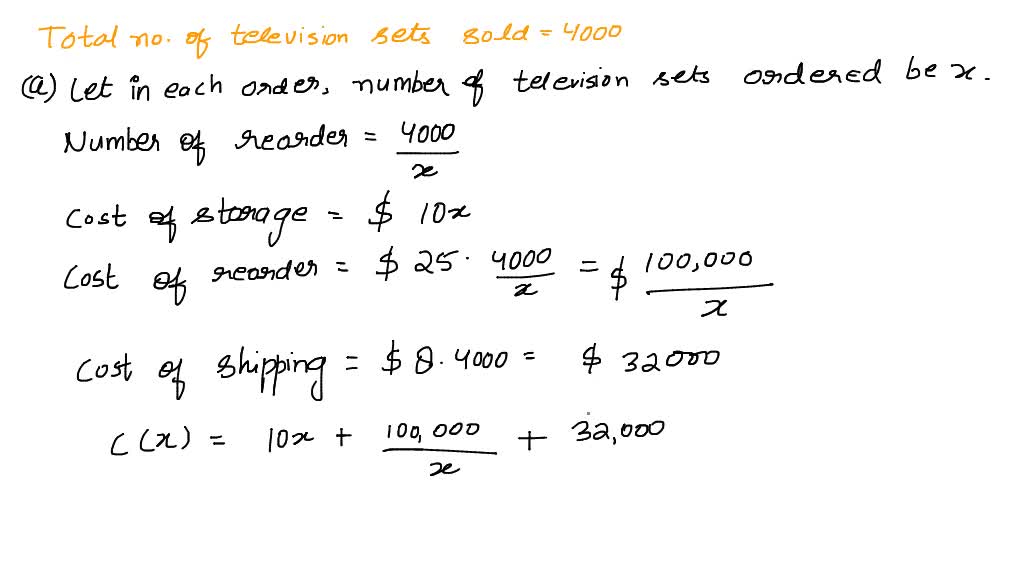 Total no. of television sets sold = 4000
(a) Let in each order, number of television sets ordered be x.
Number of reorder = 4000/x
Cost of storage = $ 10x
Cost of reorder = $ 25 · 4000/x = $ 100,000/x
Cost of shipping = $ 8 · 4000 = $ 32000
C(x) = 10x + 100,000/x + 32,000